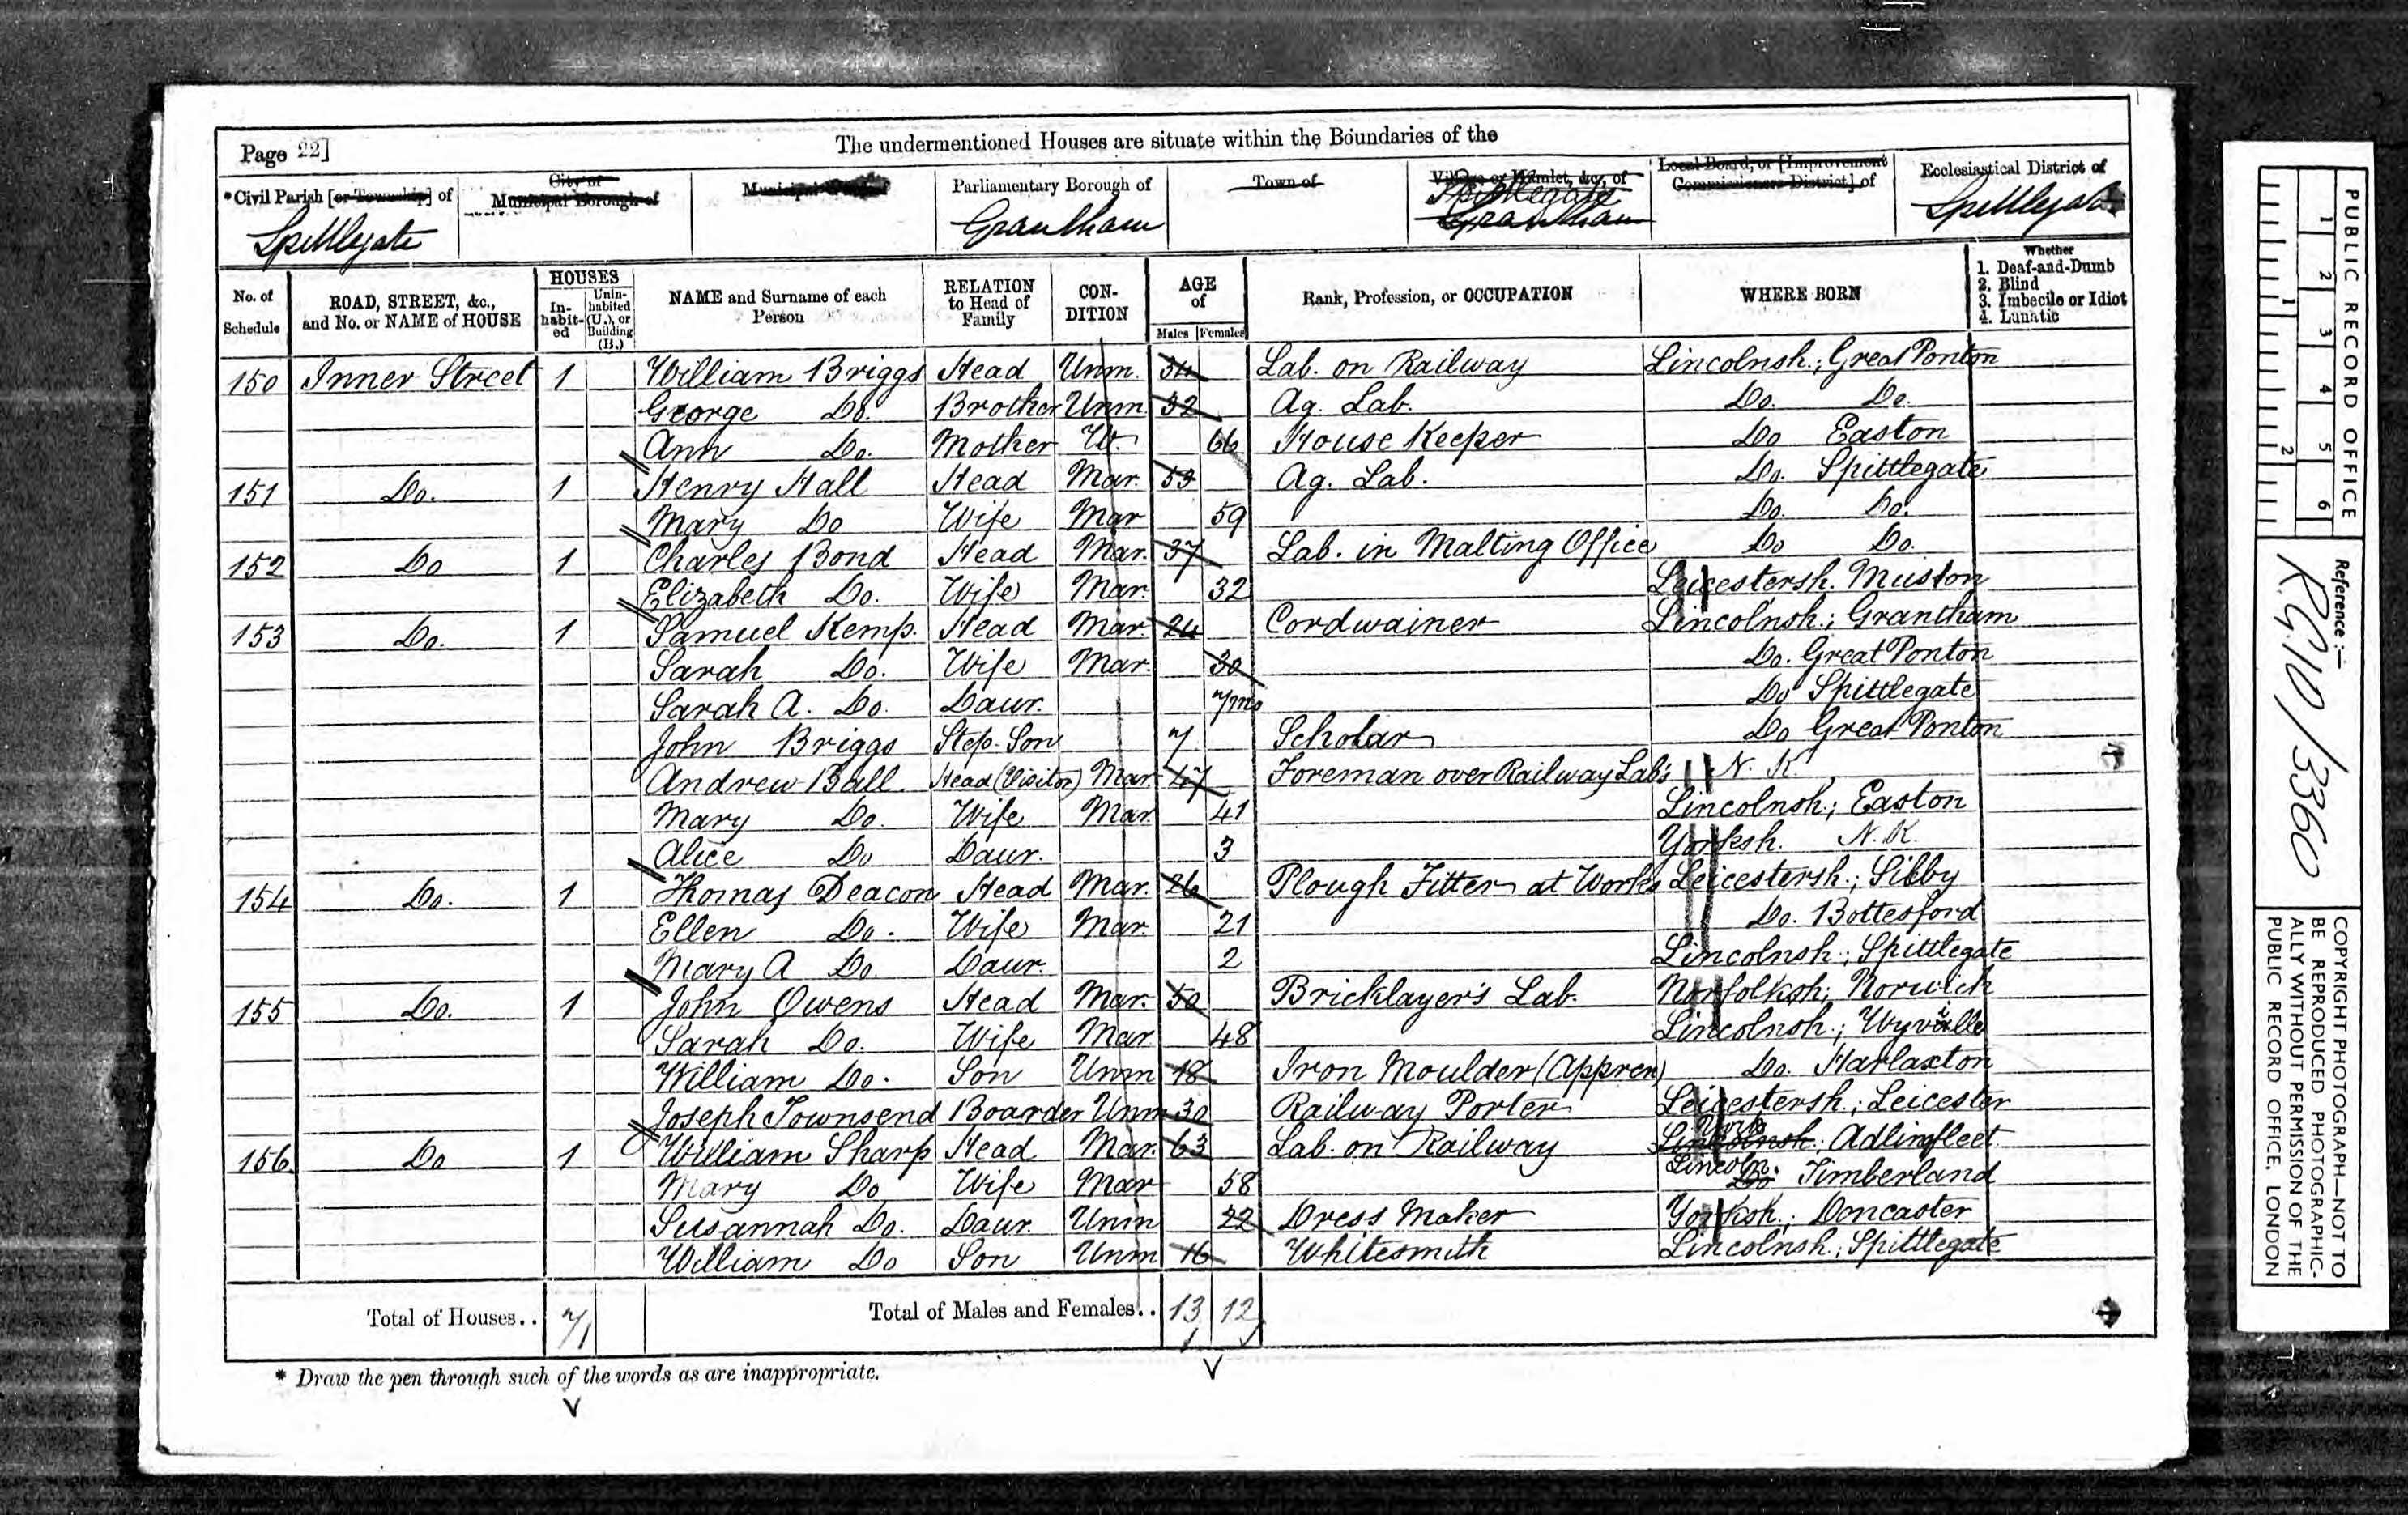 Page 22]
The undermentioned Houses are situate within the Boundaries of the
*Civil Parish [or Township] of
City of
Municipal Borough of
Municipal
Parliamentary Borough of
Town of
Village or Hamlet, &c., of
Local Board, or [Improvement Commissioners District] of
Ecclesiastical District of
Spittlegate
Grantham
Spittlegate
Grantham
Spittlegate
No. of Schedule
ROAD, STREET, &c., and No. or NAME of HOUSE
HOUSES
In-habit-ed
Unin-habited (U.), or Building (B.)
NAME and Surname of each Person
RELATION to Head of Family
CON-DITION
AGE of
Males
Females
Rank, Profession, or OCCUPATION
WHERE BORN
Whether
1. Deaf-and-Dumb
2. Blind
3. Imbecile or Idiot
4. Lunatic
150 Inner Street 1 William Briggs Head Unm. 34 Lab. on Railway Lincolnsh.; Great Ponton
George Do. Brother Unm. 32 Ag. Lab. Do. Do.
Ann Do. Mother W. 66 House Keeper Do Easton
151 Do. 1 Henry Hall Head Mar. 53 Ag. Lab. Do. Spittlegate
Mary Do Wife Mar 59 Do. Do.
152 Do 1 Charles Bond Head Mar. 37 Lab. in Malting Office Do Do.
Elizabeth Do. Wife Mar. 32 Leicestersh. Muston
153 Do. 1 Samuel Kemp. Head Mar. 24 Cordwainer Lincolnsh.; Grantham
Sarah Do. Wife Mar. 30 Do. Great Ponton
Sarah A. Do. Daur. 7mo Do Spittlegate
John Briggs Step-Son 7 Scholar Do Great Ponton
Andrew Ball Head (Visitor) Mar. 47 Foreman over Railway Lab's N. K.
Mary Do. Wife Mar. 41 Lincolnsh; Easton
Alice Do Daur. 3 Yorksh. N. K.
154 Do. 1 Thomas Deacon Head Mar. 26 Plough Fitter at Works Leicestersh.; Silby
Ellen Do. Wife Mar. 21 Do. Bottesford
Mary A Do Daur. 2 Lincolnsh.; Spittlegate
155 Do. 1 John Owens Head Mar. 50 Bricklayer's Lab. Norfolksh; Norwich
Sarah Do. Wife Mar 48 Lincolnsh.; Wyville
William Do. Son Unm 18 Iron Moulder (Appren) Do. Harlaxton
Joseph Townsend Boarder Unm 30 Railway Porter Leicestersh.; Leicester
156 Do 1 William Sharp Head Mar. 63 Lab. on Railway Lincolnsh. York Adlingfleet
Mary Do Wife Mar 58 Do. Lincoln. Timberland
Susannah Do. Daur. Unm 22 Dress Maker Yorksh.; Doncaster
William Do Son Unm 16 Whitesmith Lincolnsh.; Spittlegate
Total of Houses.. 7 Total of Males and Females.. 13 12
* Draw the pen through such of the words as are inappropriate.
PUBLIC RECORD OFFICE
1 2 3 4 5 6
1 2
Reference:—
R.G. 10 / 3360
COPYRIGHT PHOTOGRAPH—NOT TO
BE REPRODUCED PHOTOGRAPHIC-
ALLY WITHOUT PERMISSION OF THE
PUBLIC RECORD OFFICE, LONDON